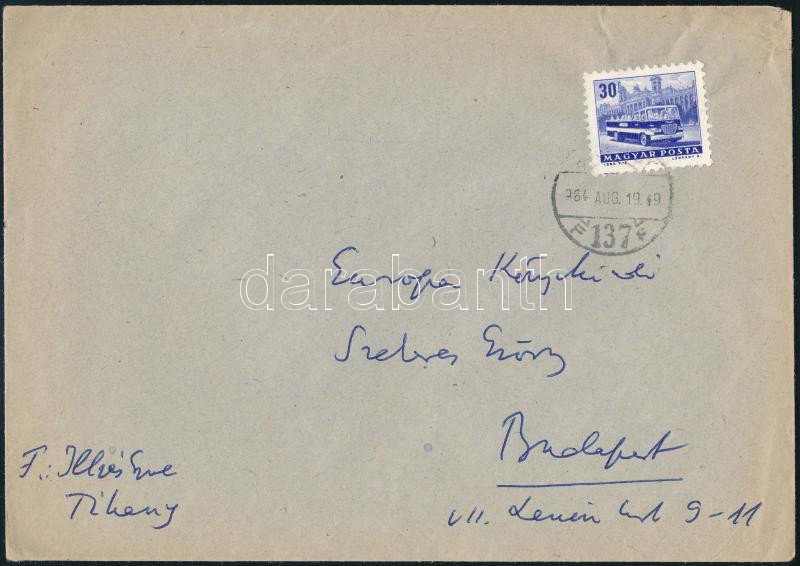 30f
MAGYAR POSTA
964 AUG. 19. 19
F 137 F
darabanth
Europa Könyvkiadó
Szeberes György
Budapest
VII. Lenin krt 9-11
F: Illyés Gy-né
Tihany